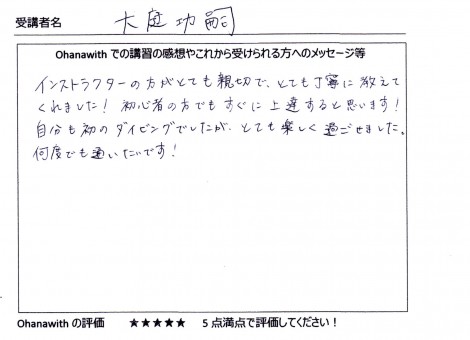 受講者名 大庭功嗣
Ohanawith での講習の感想やこれから受けられる方へのメッセージ等
インストラクターの方がとても親切で、とても丁寧に教えて
くれました！初心者の方でもすぐに上達すると思います！
自分も初のダイビングでしたが、とても楽しく過ごせました。
何度でも通いたいです！
Ohanawith の評価 ★★★★★ 5 点満点で評価してください！